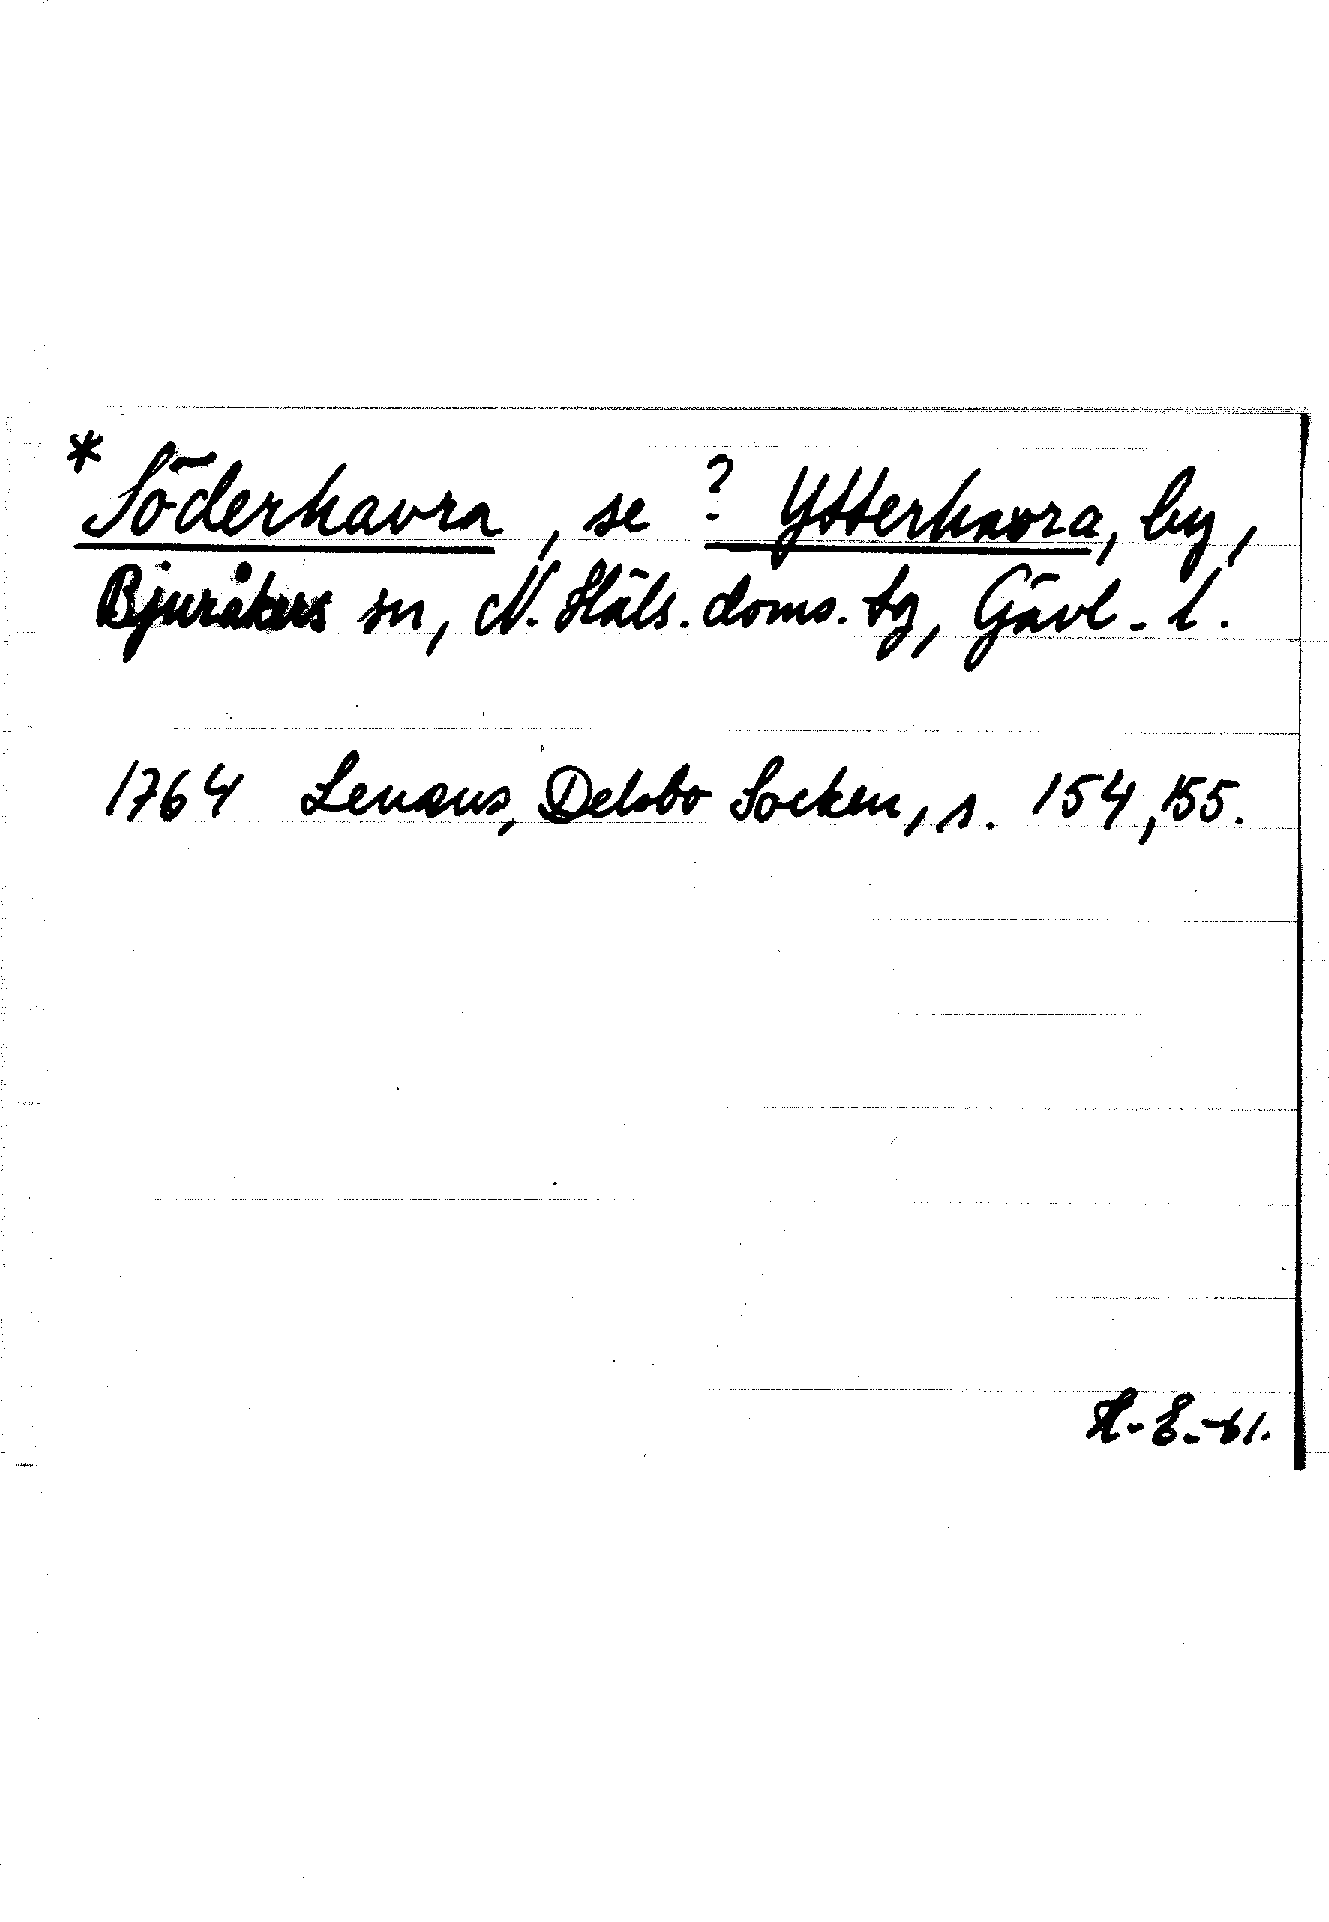 * Söderhavra, se ? Ytterhavra, by,
Bjuråkers sn, N. Häls. doms. tg, Gävl. l.
1764 Lenæus, Delsbo Socken, s. 154, 155.
H-E-61.